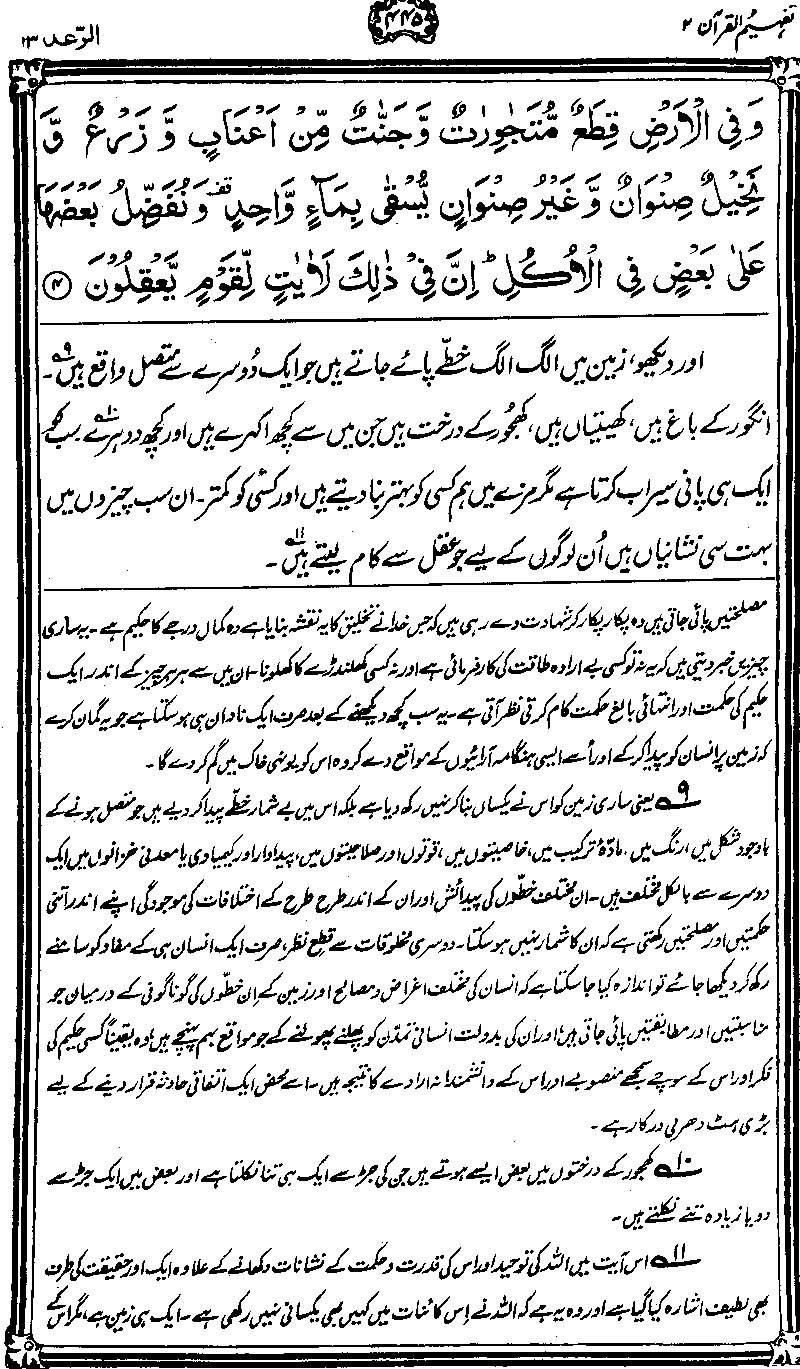 تفہیم القرآن ۲
۴۴۵
الرّعد ۱۳
وَفِی الْاَرْضِ قِطَعٌ مُّتَجٰوِرٰتٌ وَّجَنّٰتٌ مِّنْ اَعْنَابٍ وَّ زَرْعٌ وَّ
نَخِیْلٌ صِنْوَانٌ وَّغَیْرُ صِنْوَانٍ یُّسْقٰی بِمَآءٍ وَّاحِدٍ ۟ وَنُفَضِّلُ بَعْضَهَا
عَلٰی بَعْضٍ فِی الْاُکُلِ ؕ اِنَّ فِیْ ذٰلِکَ لَاٰیٰتٍ لِّقَوْمٍ یَّعْقِلُوْنَ ﴿۴﴾
اور دیکھو، زمین میں الگ الگ خطّے پائے جاتے ہیں جو ایک دُوسرے سے متصل واقع ہیں۹۔
انگور کے باغ ہیں، کھیتیاں ہیں، کھجُور کے درخت ہیں جن میں سے کچھ اکہرے ہیں اور کچھ دوہرے۱۰۔ سب کو
ایک ہی پانی سیراب کرتا ہے مگر مزے میں ہم کسی کو بہتر بنا دیتے ہیں اور کسی کو کمتر۔ ان سب چیزوں میں
بہت سی نشانیاں ہیں اُن لوگوں کے لیے جو عقل سے کام لیتے ہیں۱۱۔
مصلحتیں پائی جاتی ہیں وہ پکار پکار کر شہادت دے رہی ہیں کہ جس خدا نے تخلیق کا یہ نقشہ بنایا ہے وہ کمال درجے کا حکیم ہے۔ یہ ساری
چیزیں خبر دیتی ہیں کہ یہ نہ تو کسی بے ارادہ طاقت کی کارفرمائی ہے اور نہ کسی کھلنڈرے کا کھلونا۔ ان میں سے ہر ہر چیز کے اندر ایک
حکیم کی حکمت اور انتہائی بالغ حکمت کام کرتی نظر آتی ہے۔ یہ سب کچھ دیکھنے کے بعد صرف ایک نادان ہی ہو سکتا ہے جو یہ گمان کرے
کہ زمین پر انسان کو پیدا کر کے اور اُسے ایسی ہنگامہ آرائیوں کے مواقع دے کر وہ اس کو یونہی خاک میں گم کر دے گا۔
۹ یعنی ساری زمین کو اس نے یکساں بنا کر نہیں رکھ دیا ہے بلکہ اس میں بے شمار خطّے پیدا کر دیے ہیں جو متصل ہونے کے
باوجود شکل میں، رنگ میں، مادّۂ ترکیب میں، خاصیتوں میں، قوتوں اور صلاحیتوں میں، پیداوار اور کیمیاوی یا معدنی خزانوں میں ایک
دوسرے سے بالکل مختلف ہیں۔ ان مختلف خطّوں کی پیدائش اور ان کے اندر طرح طرح کے اختلافات کی موجودگی اپنے اندر اتنی
حکمتیں اور مصلحتیں رکھتی ہے کہ ان کا شمار نہیں ہو سکتا۔ دوسری مخلوقات سے قطع نظر، صرف ایک انسان ہی کے مفاد کو سامنے
رکھ کر دیکھا جائے تو اندازہ کیا جا سکتا ہے کہ انسان کی مختلف اغراض و مصالح اور زمین کے اِن خطّوں کی گوناگونی کے درمیان جو
مناسبتیں اور مطابقتیں پائی جاتی ہیں، اور ان کی بدولت انسانی تمدّن کو پھلنے پھولنے کے جو مواقع بہم پہنچے ہیں، وہ یقیناً کسی حکیم کی
فکر اور اس کے سوچے سمجھے منصوبے اور اس کے دانشمندانہ ارادے کا نتیجہ ہیں۔ اسے محض ایک اتفاقی حادثہ قرار دینے کے لیے
بڑی ہٹ دھرمی درکار ہے۔
۱۰ کھجور کے درختوں میں بعض ایسے ہوتے ہیں جن کی جڑ سے ایک ہی تنا نکلتا ہے اور بعض میں ایک جڑ سے
دو یا زیادہ تنے نکلتے ہیں۔
۱۱ اس آیت میں اللہ کی توحید اور اس کی قدرت و حکمت کے نشانات دکھانے کے علاوہ ایک اور حقیقت کی طرف
بھی لطیف اشارہ کیا گیا ہے اور وہ یہ ہے کہ اللہ نے اِس کائنات میں کہیں بھی یکسانی نہیں رکھی ہے۔ ایک ہی زمین ہے، مگر اس کے